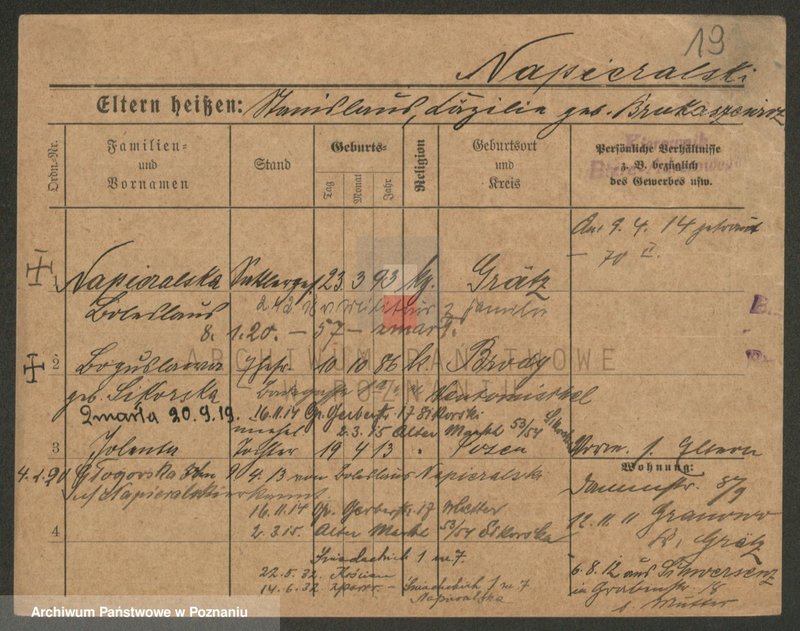 19
Napieralski
Eltern heißen: Stanislaus, Cäzilie geb. Brukaszewicz
Ordn.-Nr.
Familien- und Vornamen
Stand
Geburts-
Tag
Monat
Jahr
Religion
Geburtsort und Kreis
Persönliche Verhältnisse z. B. bezüglich des Gewerbes usw.
An 9. 4. 14 getraut
70 II.
1 Napieralska Sattlerges. 23. 3 93 k. Grätz
Boleslaus
8. 1. 20. – 57 – zmarł.
ARCHIWUM PAŃSTWOWE
W POZNANIU
2 Boguslawa Ehefr. 10 10 86 k. Brody
geb. Sikorska Neutomischel
zmarła 20.9.19. 16.11.14 Gr. Gerberstr. 17 Sikorski
2.3.15 Alter Markt 53/54 Sikorska
3 Jolenta Tochter 19 4 13 " Posen
Vorm. s. Eltern
Wohnung:
4.2.90 Glogorska
4.13 von Boleslaus Napieralski
Dammstr. 8/9
16.11.14 Gr. Gerberstr. 17
12.11.11 Granowo
4
2.3.15. Alter Markt 53/54 Sikorska
Kr. Grätz
Śniadeckich 1 m 7.
22.5.32. Kościan
6.8.12 aus Schwersenz
14.6.32 – Śniadeckich 1 m 7
in Grabenstr. 18
Napieralska
b. Mutter
Archiwum Państwowe w Poznaniu